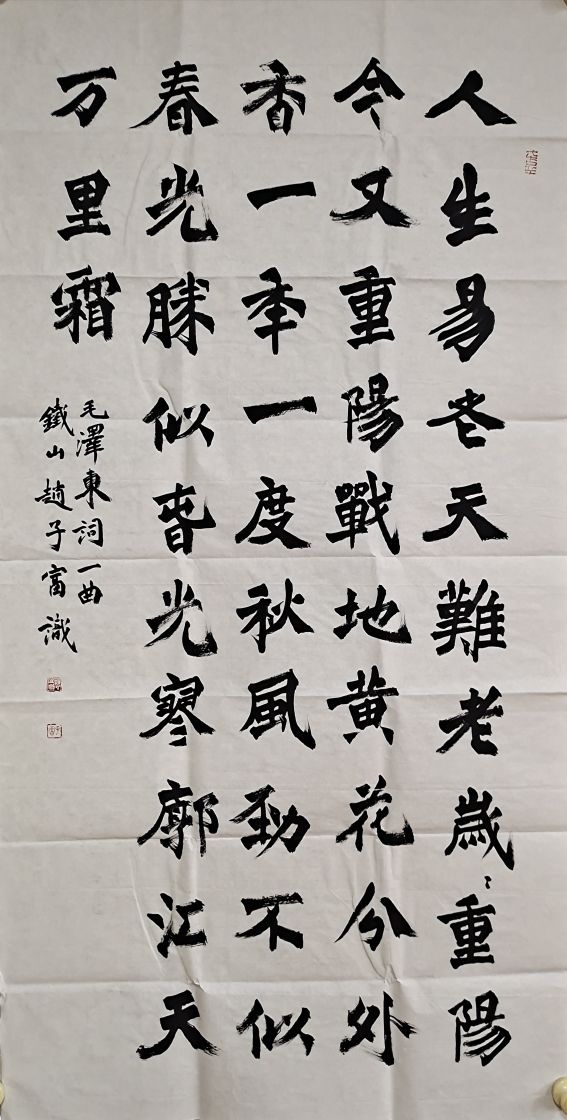 人生易老天難老歲々重陽
今又重陽戰地黄花分外
香一年一度秋風劲不似
春光勝似春光寥廓江天
万里霜
毛澤東詞一曲
鐵山趙子富識